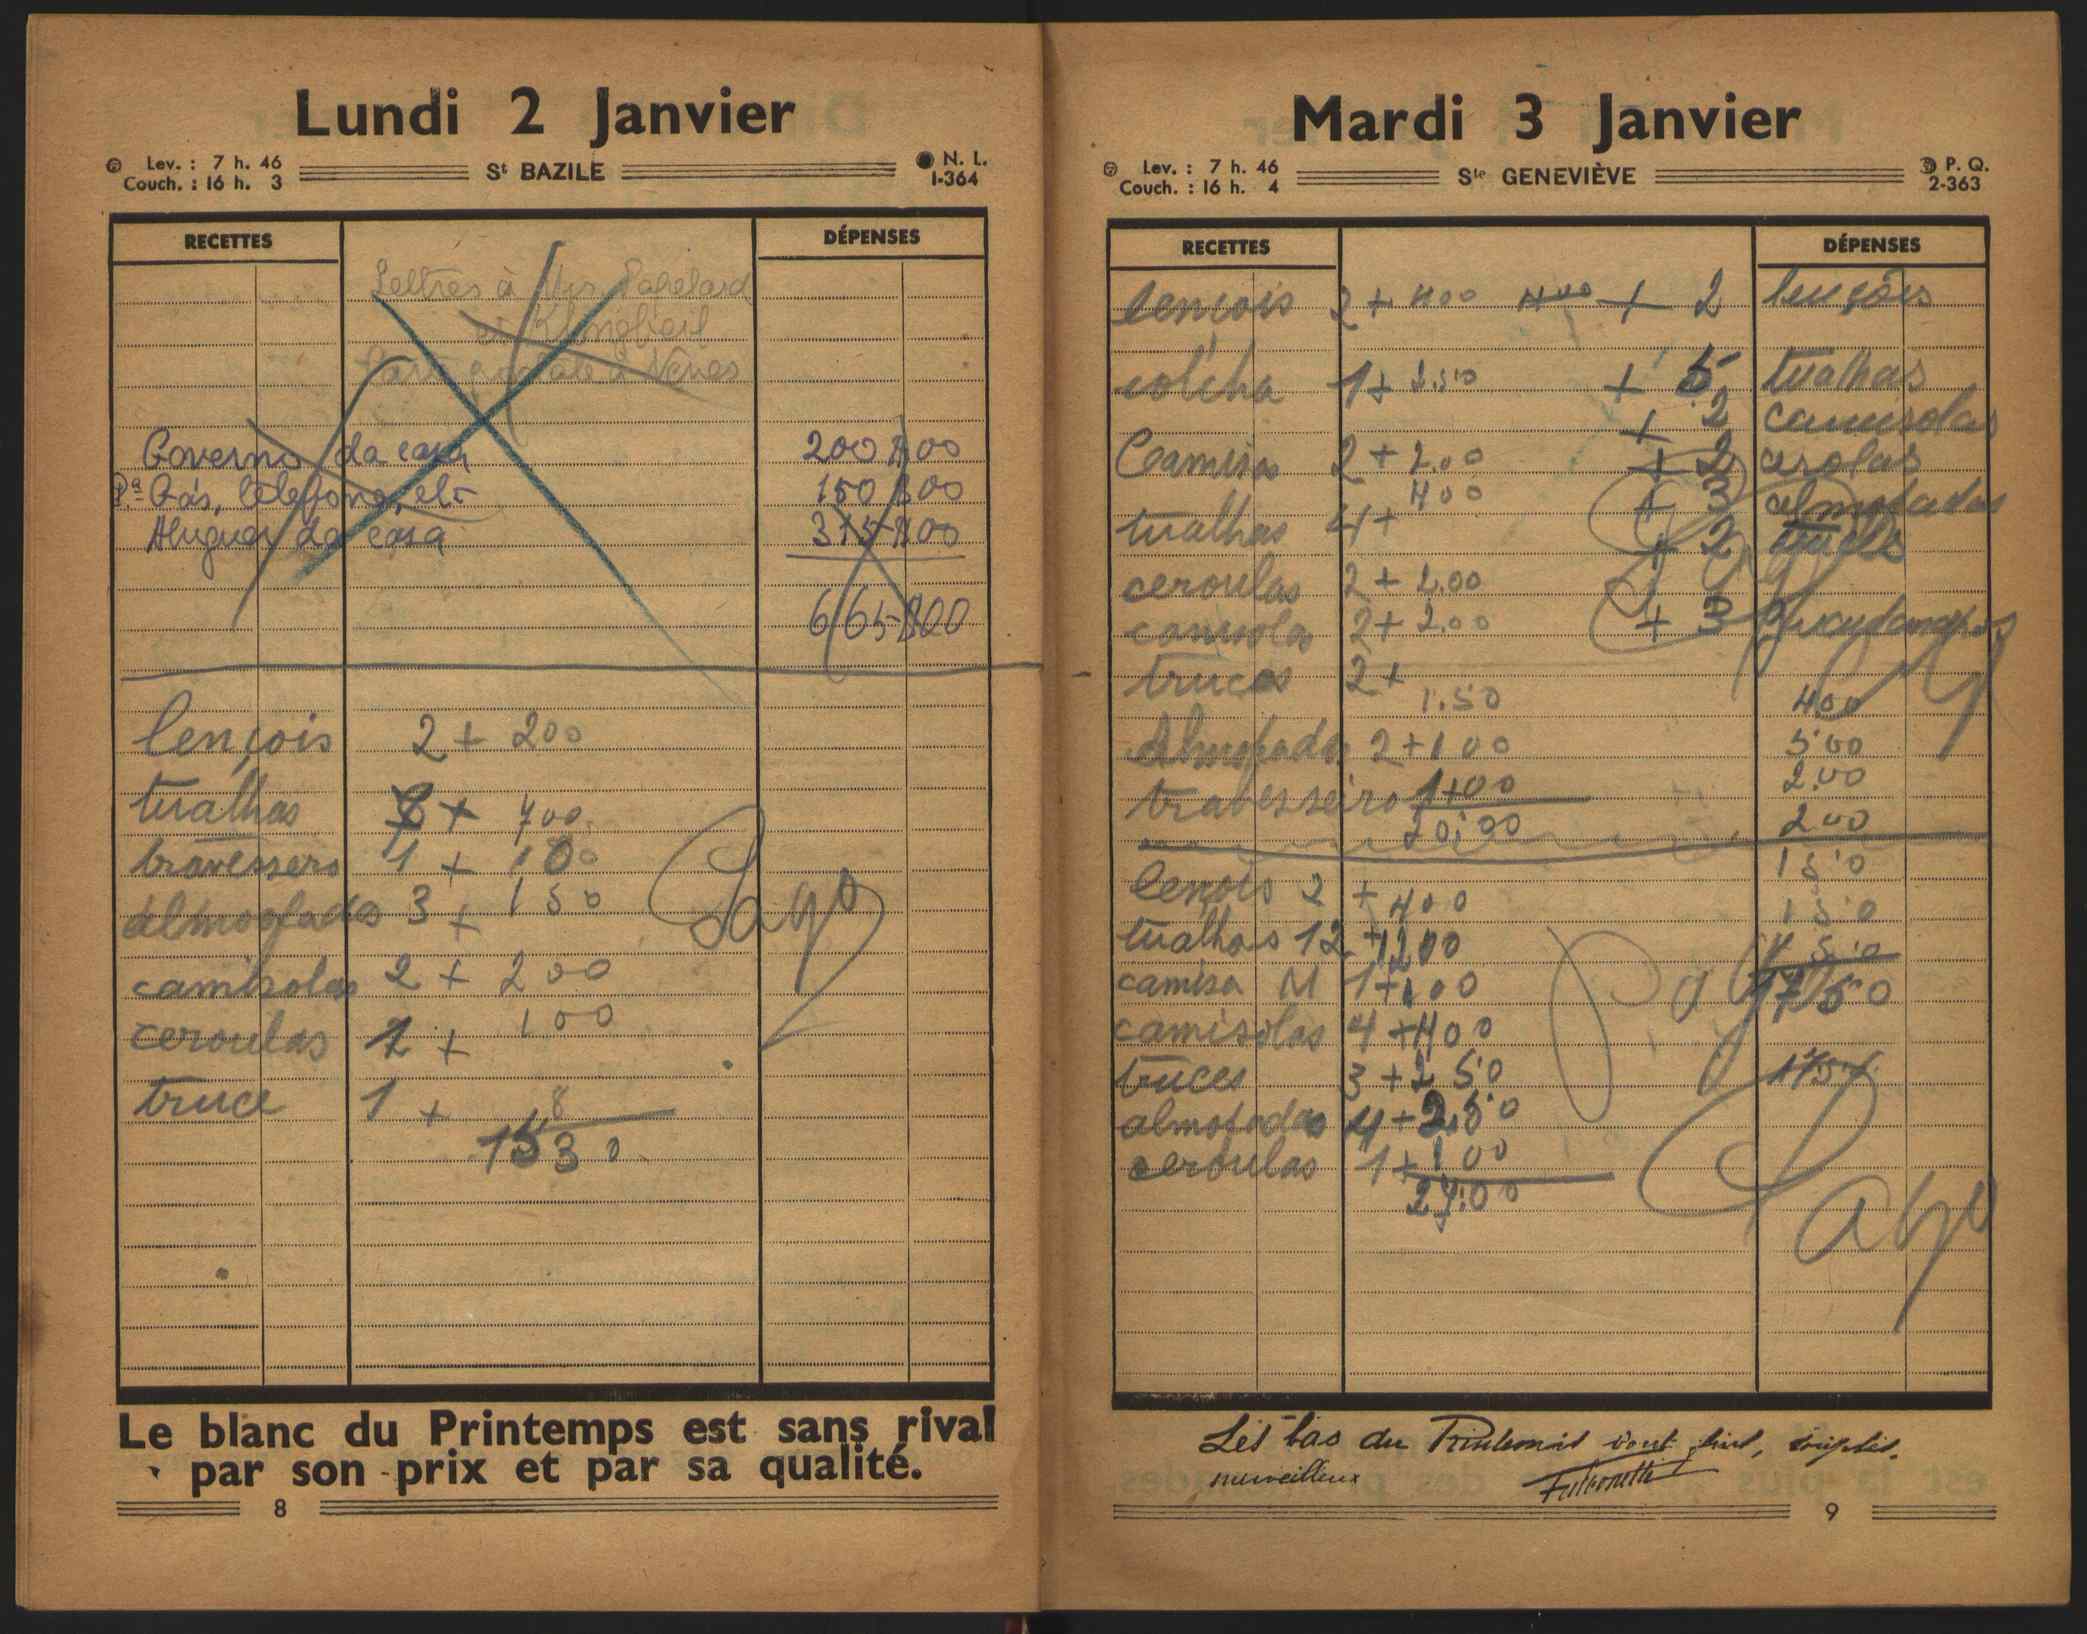 Lundi 2 Janvier
Lev. : 7 h. 46
Couch. : 16 h. 3
St BAZILE
N. L.
1-364
RECETTES
DÉPENSES
Lettres à Mrs Papelard
et Klingbeil
Carte postale à
Governo da casa 200$00
Pª Gás, telefone, etc 150$00
Aluguer da casa 315$00
665$00
lençois 2 + 200
tualhas 7 + 700
travessers 1 + 100
almogfadas 3 + 150
camisolas 2 + 200
ceroulas 1 + 100
truce 1 + 8
1530
Pago
Le blanc du Printemps est sans rival
par son prix et par sa qualité.
8
Mardi 3 Janvier
Lev. : 7 h. 46
Couch. : 16 h. 4
Ste GENEVIÈVE
P. Q.
2-363
RECETTES
DÉPENSES
lencois 2 + 400 400 + 2 lençois
colcha 1 + + 5 tualhas
+ 2 camisolas
Camisa 2 + 2.00 + 2 cerolas
tualhas 4 + 400 + 3 almofadas
+ 2
ceroulas 2 + 2.00
camisola 2 + 2.00 + 3
truces 2 + 1.50
400
Almofada 2 + 100 500
200
travesseiro 1 + 00
20:00 200
150
lençois 2 + 400
150
tualhas 12 + 1200
camisa M 1 + 100 1750
camisolas 4 + 400
truces 3 + 2 50
almofadas 4 + 2.50
ceroulas 1 + 100
27:00
Pago
Pago
Les bas du Printemps sont fins, souples,
merveilleux
9